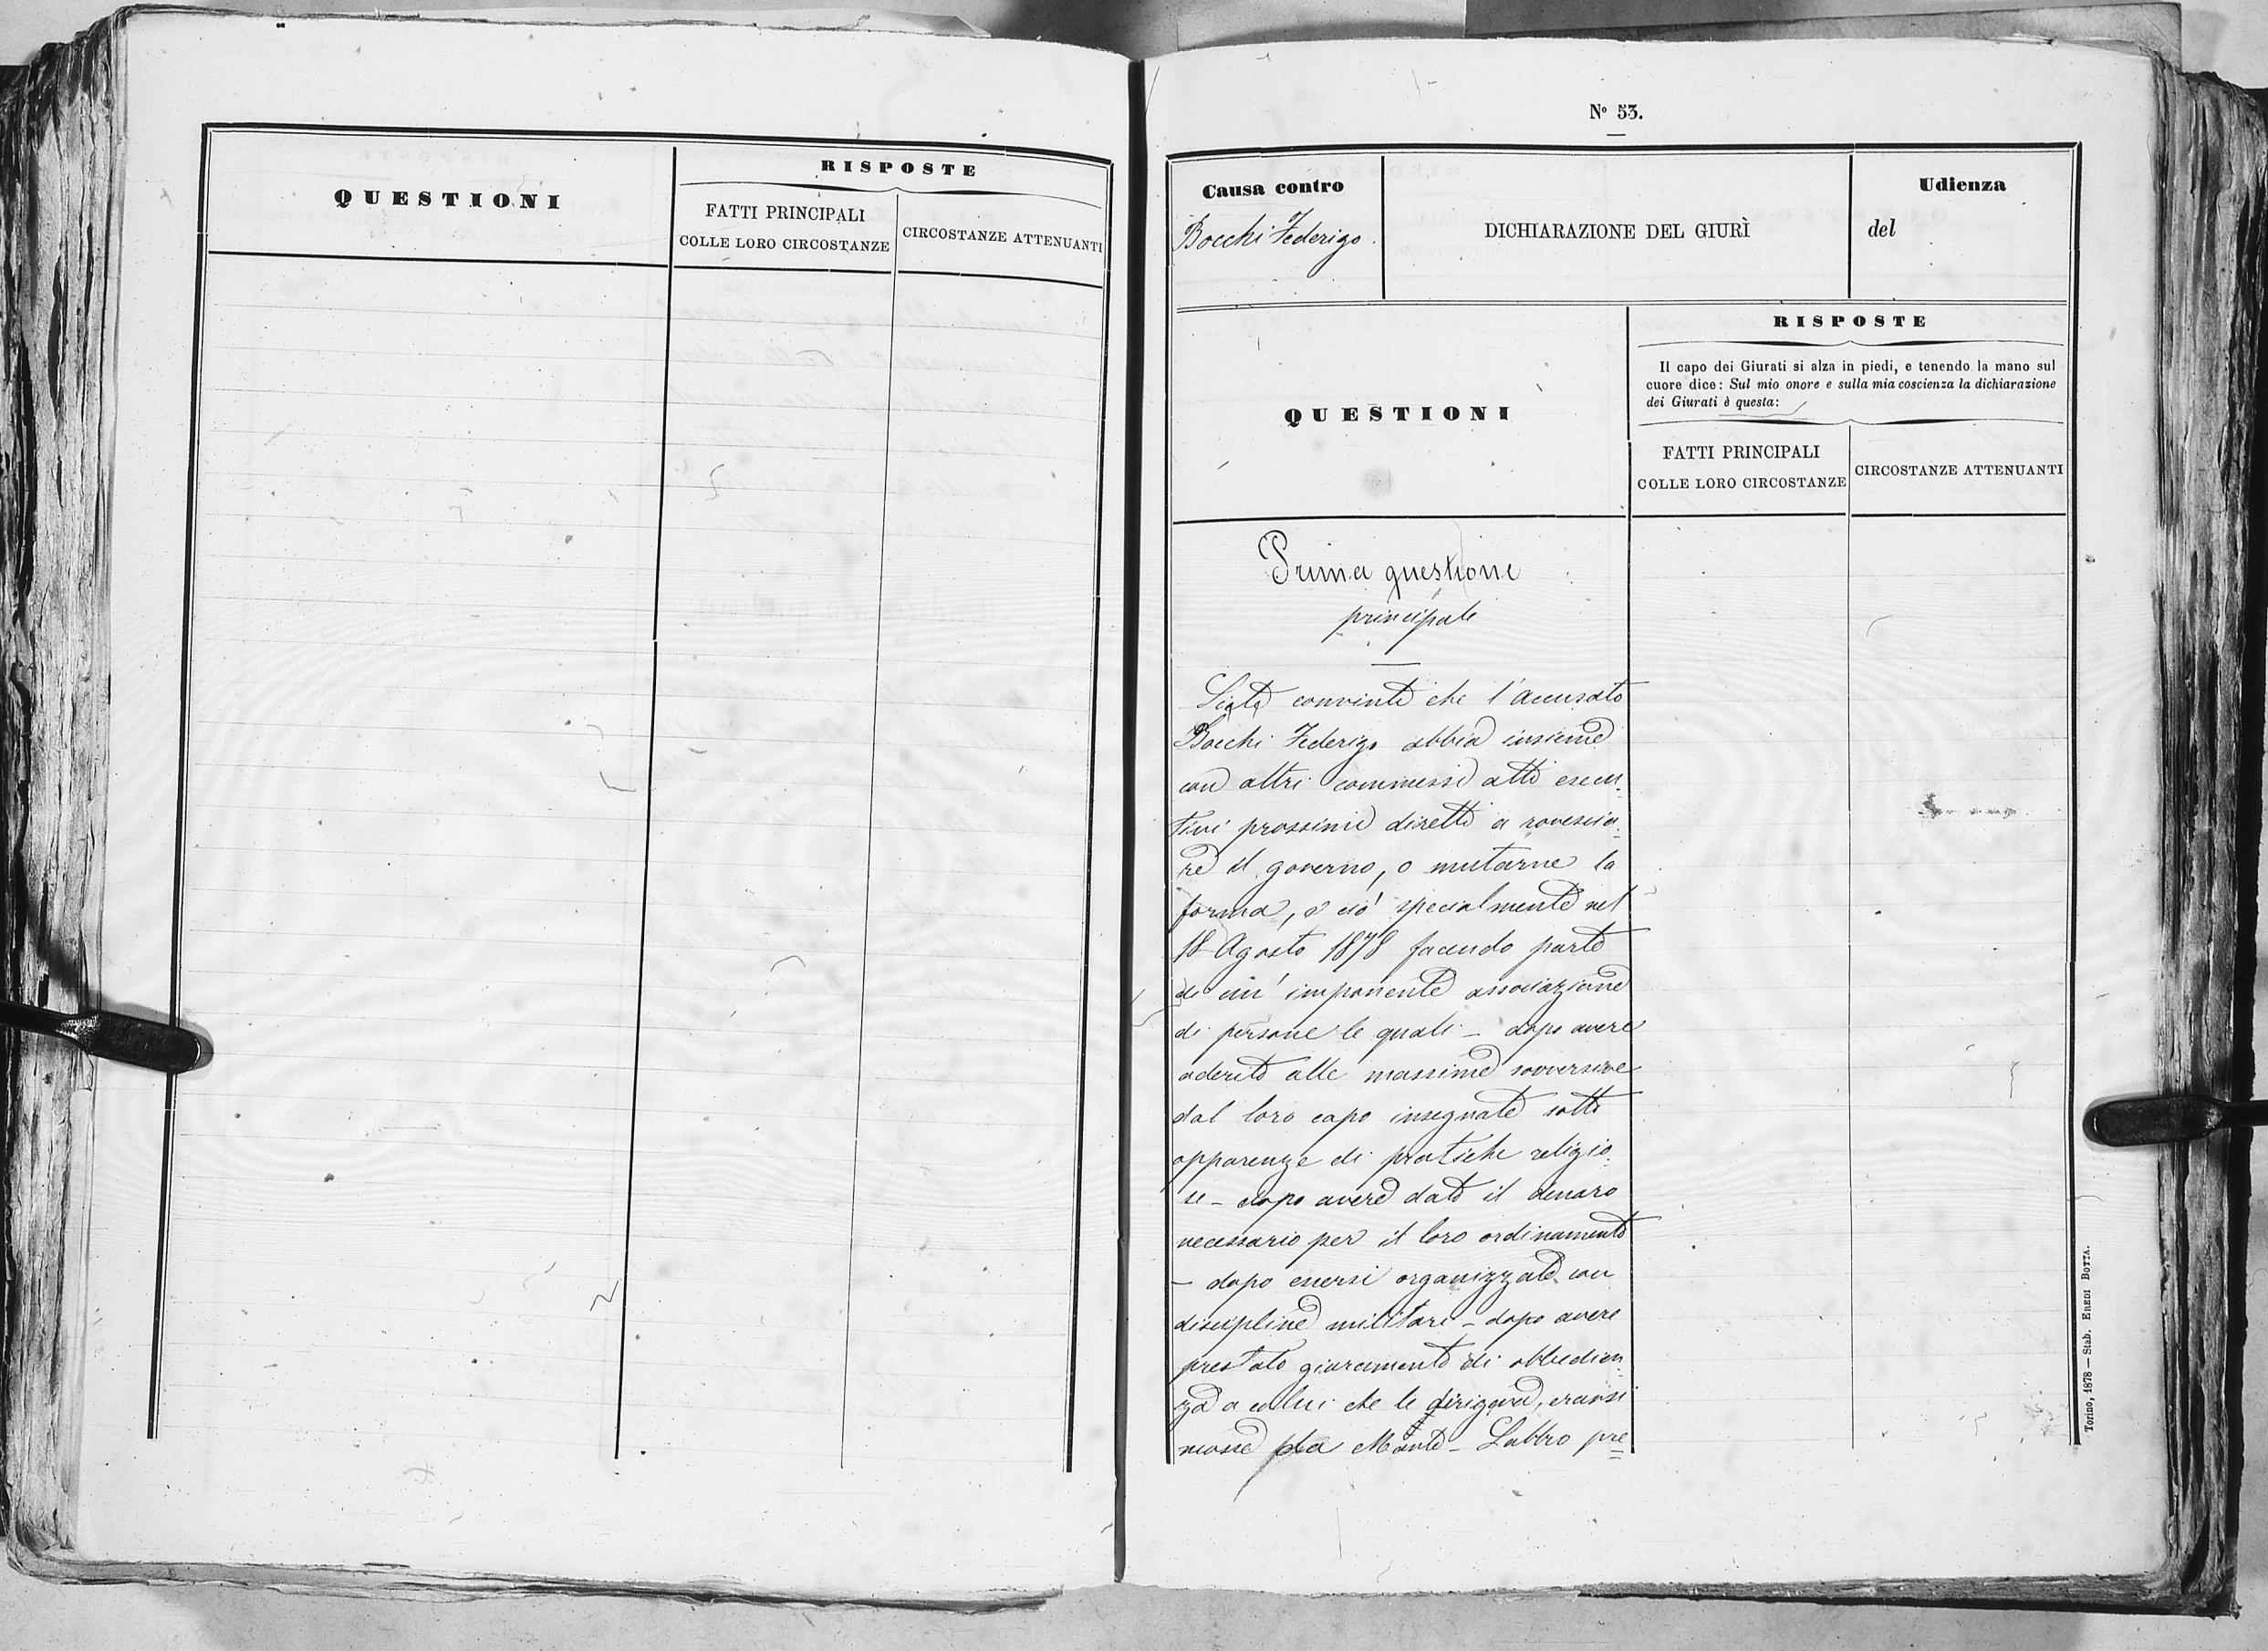 QUESTIONI
RISPOSTE
FATTI PRINCIPALI
COLLE LORO CIRCOSTANZE
CIRCOSTANZE ATTENUANTI
Nº 53.
Causa contro
Bocchi Federigo.
DICHIARAZIONE DEL GIURÌ
Udienza
del
QUESTIONI
RISPOSTE
Il capo dei Giurati si alza in piedi, e tenendo la mano sul
cuore dice: Sul mio onore e sulla mia coscienza la dichiarazione
dei Giurati è questa:
FATTI PRINCIPALI
COLLE LORO CIRCOSTANZE
CIRCOSTANZE ATTENUANTI
Prima questione
principale
Siete convinti che l'accusato
Bocchi Federigo abbia insieme
con altri commessi atti esecu-
tivi prossimi diretti a rovescia-
re il governo, o mutarne la
forma, e ciò specialmente nel
18 Agosto 1878 facendo parte
di un' imponente associazione
di persone le quali - dopo avere
aderito alle massime sovversive
dal loro capo insegnate sotto
apparenze di pratiche religio-
se - dopo avere dato il denaro
necessario per il loro ordinamento
- dopo essersi organizzate con
discipline militari - dopo avere
prestato giuramento di obbedien-
za a colui che le dirigeva, eransi
mosse da Monte-Labbro pre=
Torino, 1878 — Stab. EREDI BOTTA.